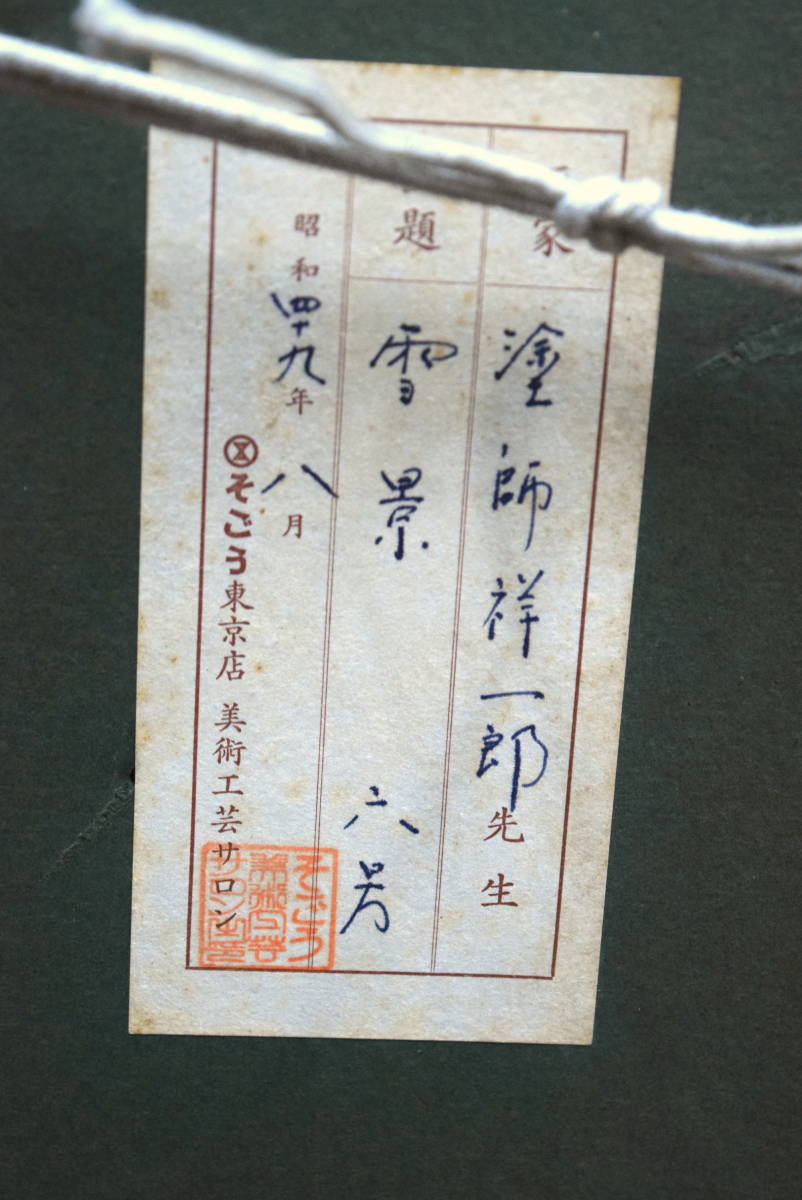 家
塗師祥一郎先生
題
雪景 六号
昭和四十九年八月
そごう東京店 美術工芸サロン
そごう
美術工芸
サロン之印